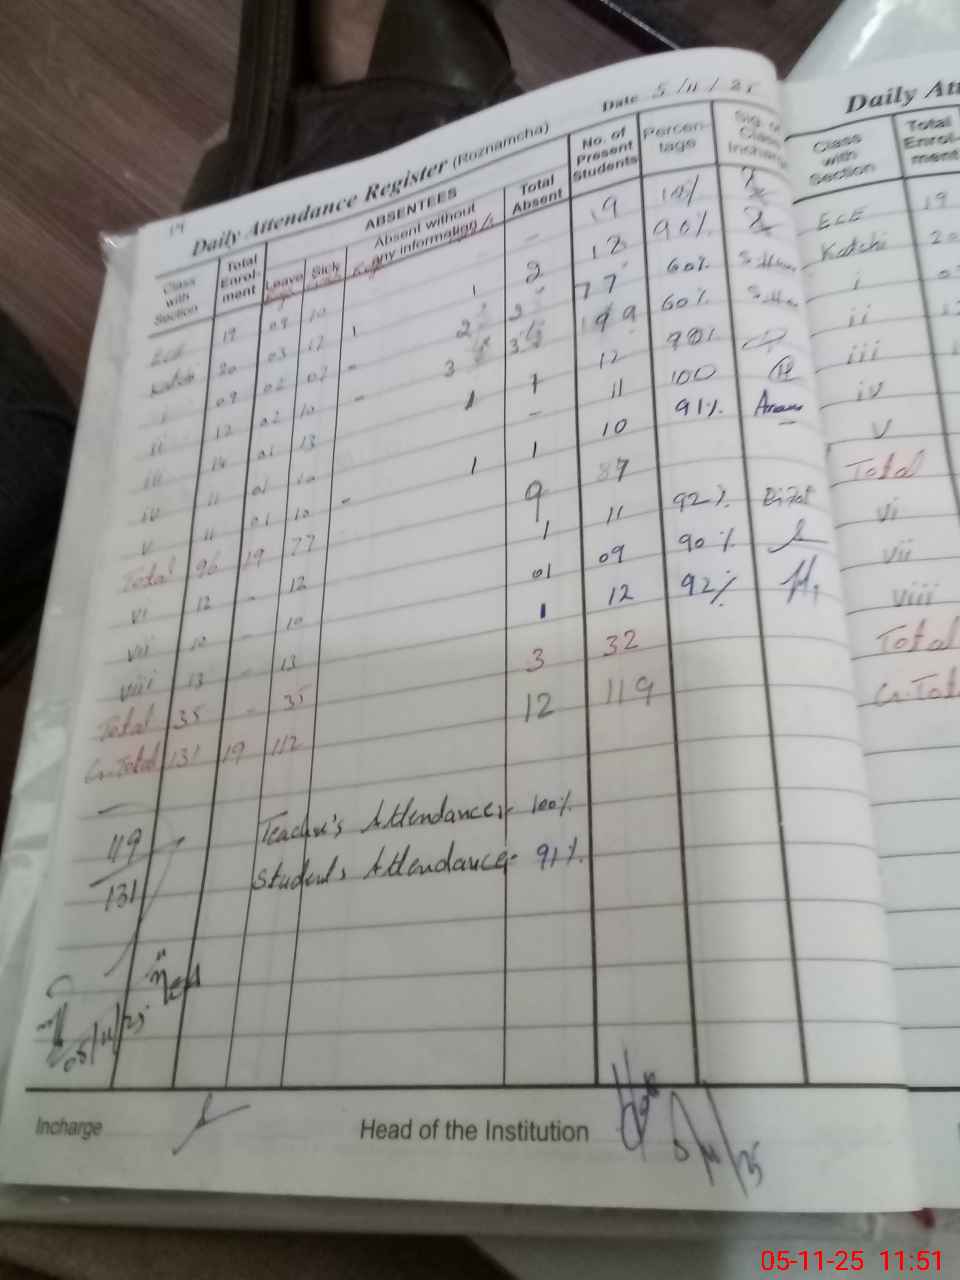 Date 5/11/25
Daily Attendance Register (Roznamcha)
Class with Section
Total Enrol-ment
ABSENTEES
Leave
Sick
Absent without any information
Total Absent
No. of Present Students
Percen-tage
Sig. of Class Incharge
ECE 19 09 10 - 19
Katchi 20 03 17 1 1 2 18 90%
i 09 02 07 - 2 2 7 60%
ii 12 02 10 - 3 3 9 60%
iii 14 01 13 1 1 12 90%
iv 11 01 10 - 11 100
v 11 01 10 - 1 1 10 91%
Total 96 19 77 9 87
vi 12 - 12 1 11 92%
vii 10 - 10 01 09 90%
viii 13 - 13 1 12 92%
Total 35 - 35 3 32
G.Total 131 19 112 12 119
119
131
Teacher's Attendance:- 100%
Students Attendance:- 91%
05/11/25
Incharge
Head of the Institution
5/11/25
Daily Att
Class with Section
Total Enrol-ment
ECE 19
Katchi 20
i
ii
iii
iv
v
Total
vi
vii
viii
Total
G.Total
05-11-25 11:51